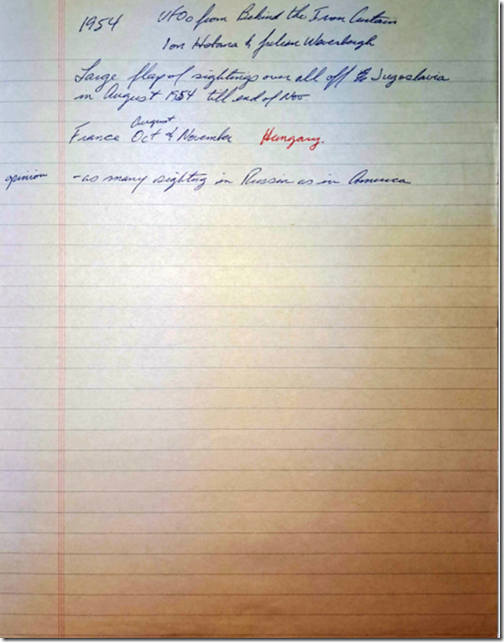 1954 UFOs from Behind the Iron Curtain
Ion Hobana & Julien Weverbergh
Large flap of sightings over all off the Jugoslavia
in August 1954 till end of Nov
August
France Oct & November Hungary.
opinion - as many sighting in Russia as in America